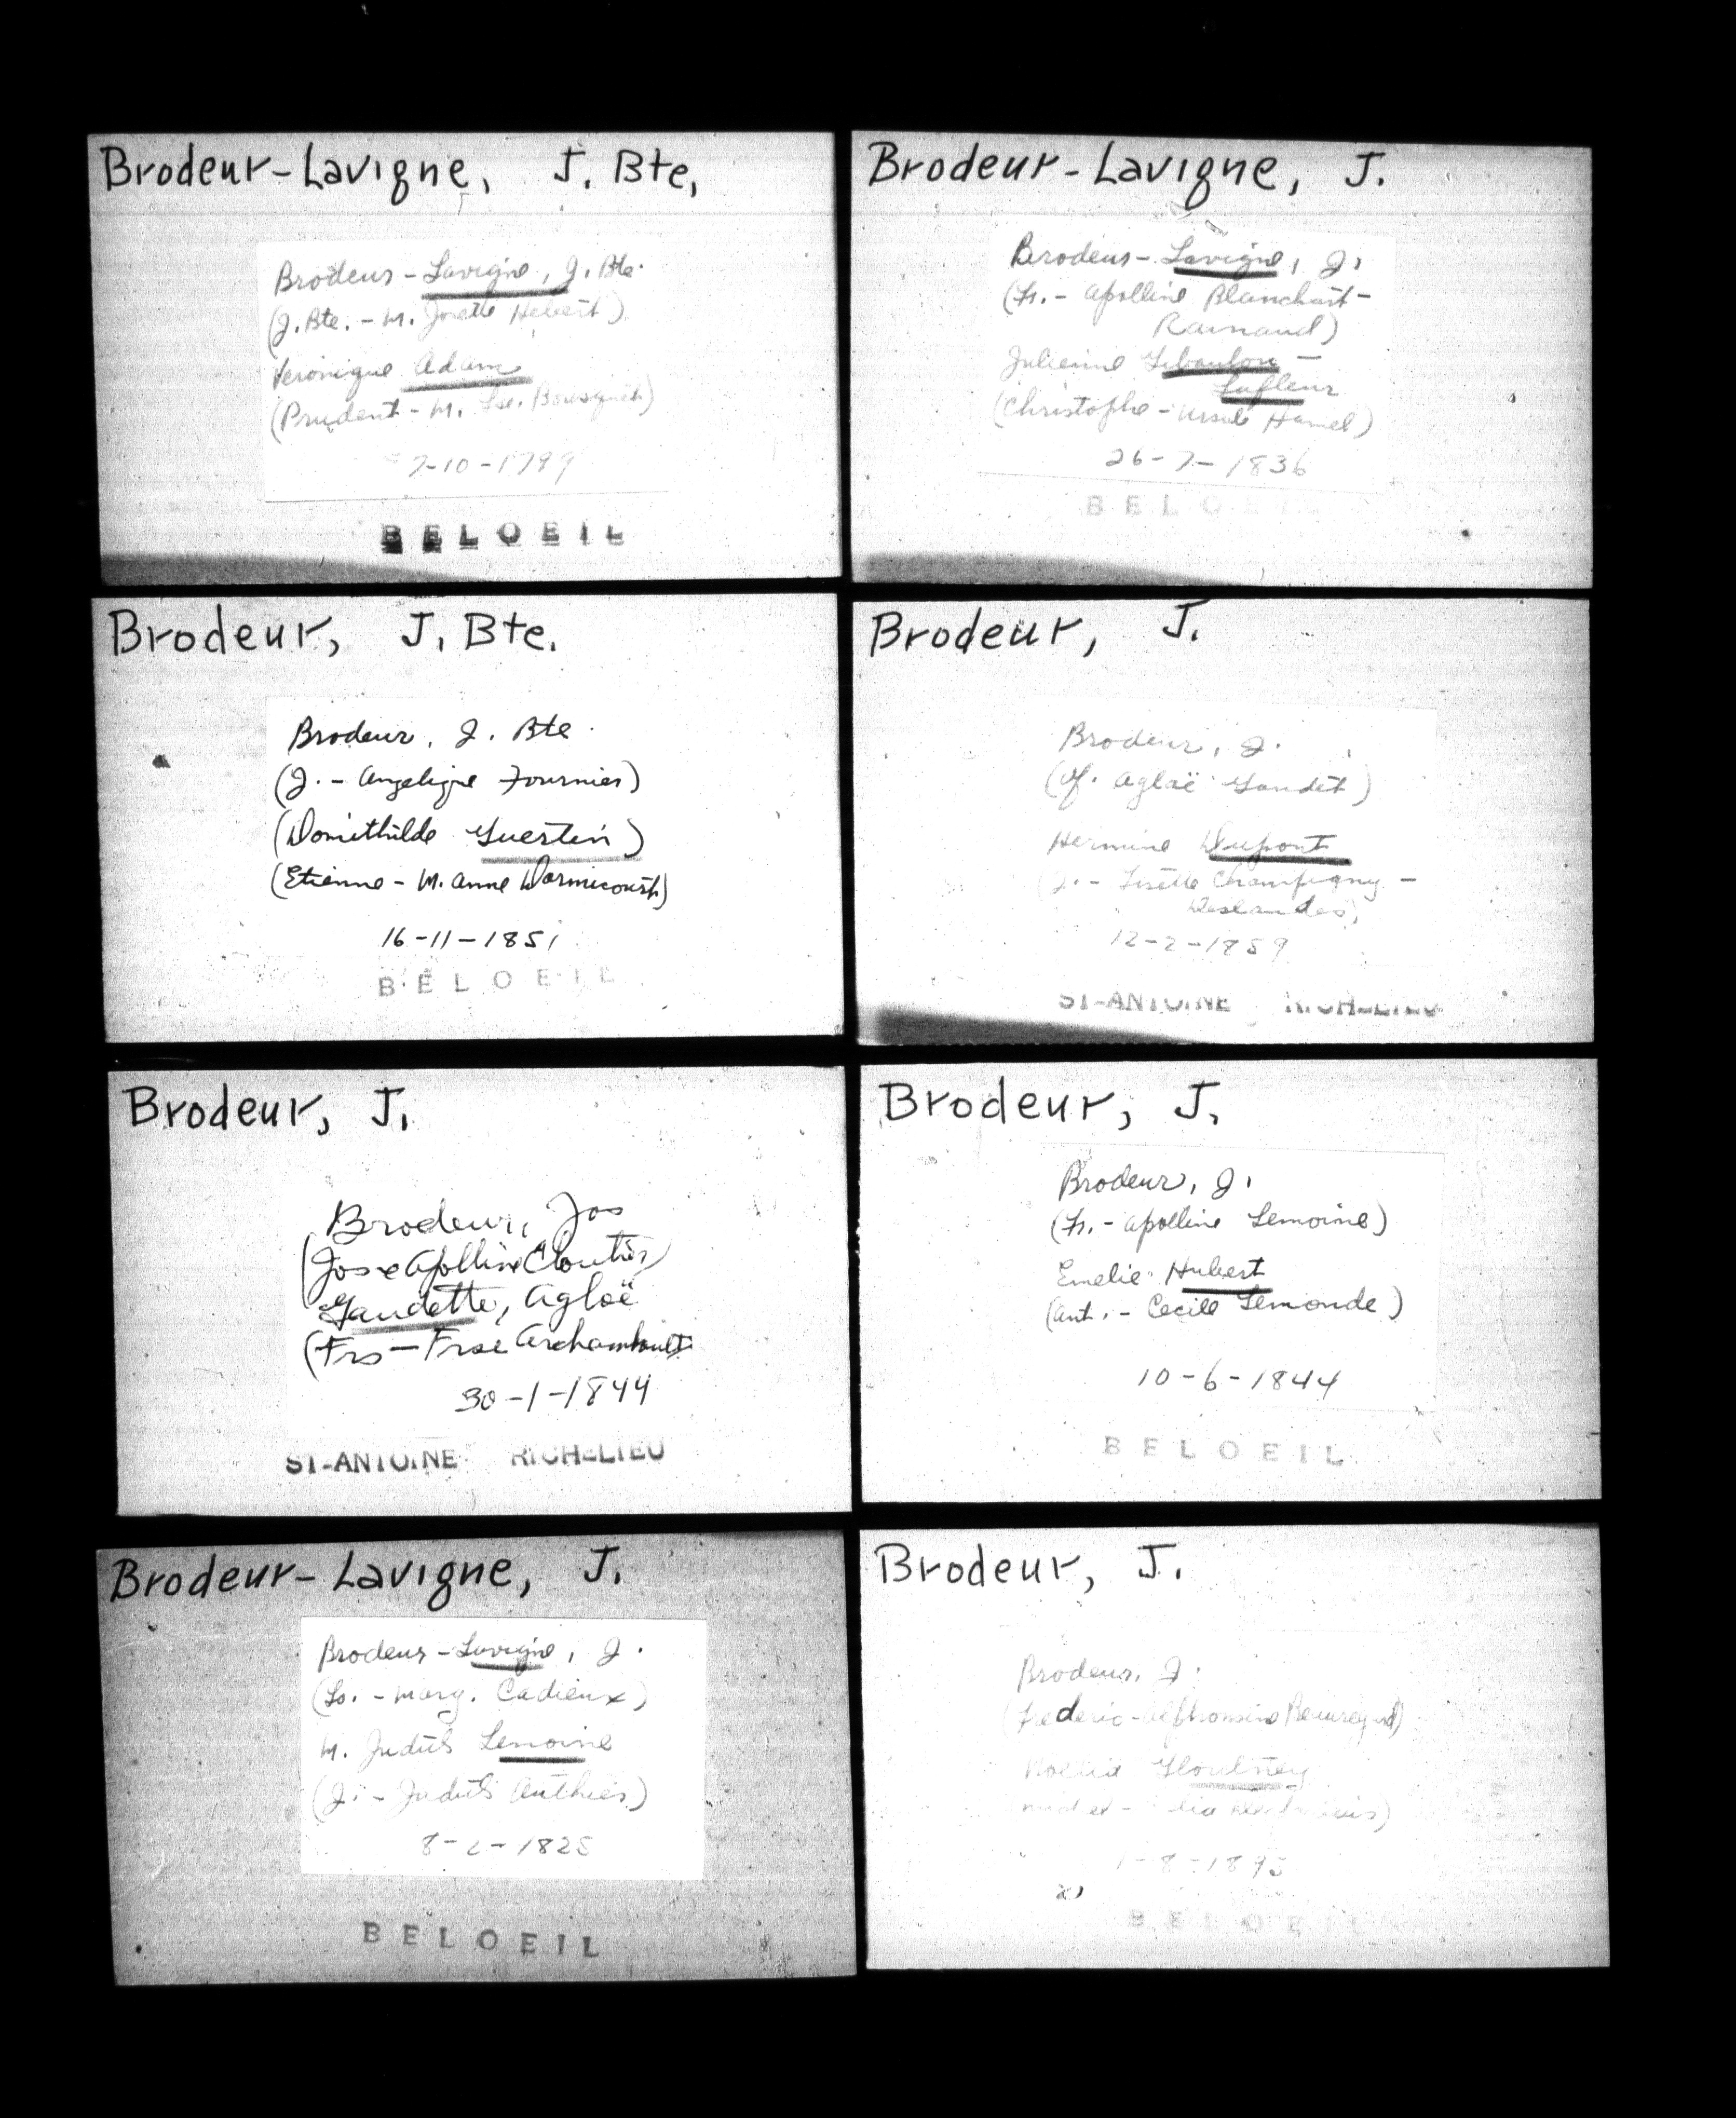 Brodeur-Lavigne, J. Bte,
Brodeur-Lavigne, J. Bte.
(J. Bte. - M. Josette Hebert)
Veronique Adam
(Prudent - M. Lse. Bousquet)
7-10-1799
BELOEIL
Brodeur-Lavigne, J.
Brodeur-Lavigne, J.
(Fr. - Apolline Blanchart-
Raynaud)
Julienne -
Lafleur
(Christophe - Ursule Hamel)
26-7-1836
BELOEIL
Brodeur, J. Bte.
Brodeur, J. Bte.
(J. - Angelique Fournier)
(Domithilde Guertin)
(Etienne - M. Anne Dormicourt)
16-11-1851
BELOEIL
Brodeur, J.
Brodeur, J.
(Vf. Aglaë Gaudet)
Hermine Dupont
(J. - Lisette Champigny -
Deslandes)
12-2-1859
ST-ANTOINE RICHELIEU
Brodeur, J.
Brodeur, Jos
(Jos & Apolline Cloutier)
Gaudette, Aglaë
(Frs - Frse Archambault)
30-1-1844
ST-ANTOINE RICHELIEU
Brodeur, J.
Brodeur, J.
(Fr. - Apolline Lemoine)
Emelie Hubert
(Ant. - Cecile Lemonde)
10-6-1844
BELOEIL
Brodeur-Lavigne, J.
Brodeur-Lavigne, J.
(Ls. - Marg. Cadieux)
M. Judith Lemoine
(J. - Judith Authier)
8-2-1825
BELOEIL
Brodeur, J.
Brodeur, J.
(Frederic - Alphonsine Beauregard)
BELOEIL